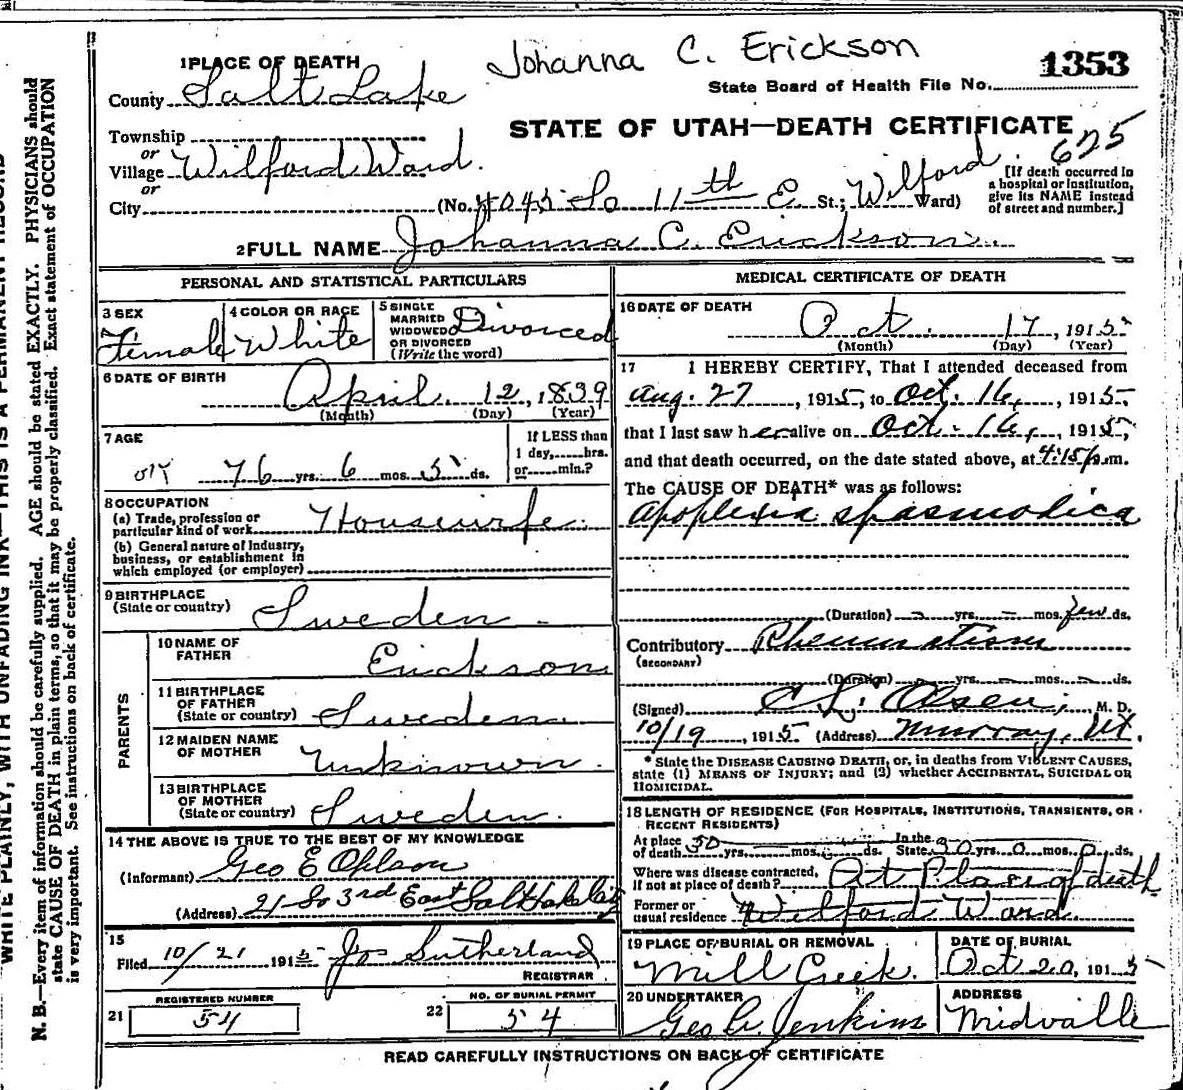 Johanna C. Erickson
1 PLACE OF DEATH
1353
County Salt Lake
State Board of Health File No.
Township
STATE OF UTAH—DEATH CERTIFICATE
625
or
Village Wilford Ward.
or
City (No. 4045 So 11th E St.; Wilford Ward)
[If death occurred in
a hospital or institution,
give its NAME instead
of street and number.]
2 FULL NAME Johanna C. Erickson.
PERSONAL AND STATISTICAL PARTICULARS
3 SEX
Female
4 COLOR OR RACE
White
5 SINGLE
MARRIED
WIDOWED
OR DIVORCED
(Write the word)
Divorced
6 DATE OF BIRTH
April 12, 1839
(Month) (Day) (Year)
7 AGE
76 yrs. 6 mos. 5 ds.
If LESS than
1 day, hrs.
or min.?
8 OCCUPATION
(a) Trade, profession or
particular kind of work Housewife.
(b) General nature of Industry,
business, or establishment in
which employed (or employer)
9 BIRTHPLACE
(State or country) Sweden.
PARENTS
10 NAME OF
FATHER Erickson
11 BIRTHPLACE
OF FATHER
(State or country) Sweden
12 MAIDEN NAME
OF MOTHER Unknown.
13 BIRTHPLACE
OF MOTHER
(State or country) Sweden.
14 THE ABOVE IS TRUE TO THE BEST OF MY KNOWLEDGE
(Informant) Geo E Ohlson
(Address) 21 So 3rd East Salt Lake City
15
Filed 10/21 1915 Jos Sutherland
REGISTRAR
REGISTERED NUMBER
21 54
NO. OF BURIAL PERMIT
22 54
MEDICAL CERTIFICATE OF DEATH
16 DATE OF DEATH
Oct. 17, 1915
(Month) (Day) (Year)
17 I HEREBY CERTIFY, That I attended deceased from
Aug. 27, 1915, to Oct. 16, 1915,
that I last saw her alive on Oct. 16, 1915,
and that death occurred, on the date stated above, at 4:15 p.m.
The CAUSE OF DEATH* was as follows:
Apoplexia spasmodica
(Duration) – yrs. – mos. few ds.
Contributory Rheumatism
(SECONDARY)
(Duration) – yrs. – mos. – ds.
(Signed) C L. Olsen, M. D.
10/19, 1915 (Address) Murray, Ut.
* State the DISEASE CAUSING DEATH, or, in deaths from VIOLENT CAUSES,
state (1) MEANS OF INJURY; and (2) whether ACCIDENTAL, SUICIDAL OR
HOMICIDAL.
18 LENGTH OF RESIDENCE (FOR HOSPITALS, INSTITUTIONS, TRANSIENTS, OR
RECENT RESIDENTS)
At place of death 30 yrs. mos. ds. In the State 30 yrs. 0 mos. 0 ds.
Where was disease contracted,
if not at place of death? At Place of death
Former or
usual residence Wilford Ward
19 PLACE OF BURIAL OR REMOVAL
Mill Creek.
DATE OF BURIAL
Oct 20, 1915
20 UNDERTAKER
Geo A. Jenkins
ADDRESS
Midvale
READ CAREFULLY INSTRUCTIONS ON BACK OF CERTIFICATE
WRITE PLAINLY, WITH UNFADING INK—THIS IS A PERMANENT RECORD
N. B.—Every item of information should be carefully supplied. AGE should be stated EXACTLY. PHYSICIANS should
state CAUSE OF DEATH in plain terms, so that it may be properly classified. Exact statement of OCCUPATION
is very important. See instructions on back of certificate.